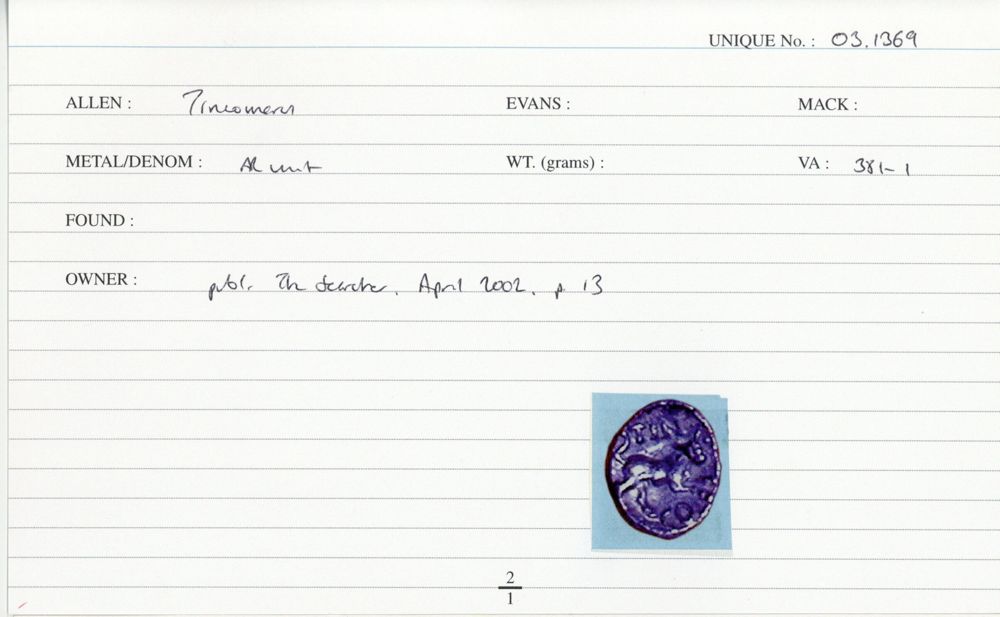 UNIQUE No. : 03.1369
ALLEN : Tincomarus EVANS : MACK :
METAL/DENOM : AR unit WT. (grams) : VA : 381-1
FOUND :
OWNER : publ. The Searcher. April 2002. p 13
2
1